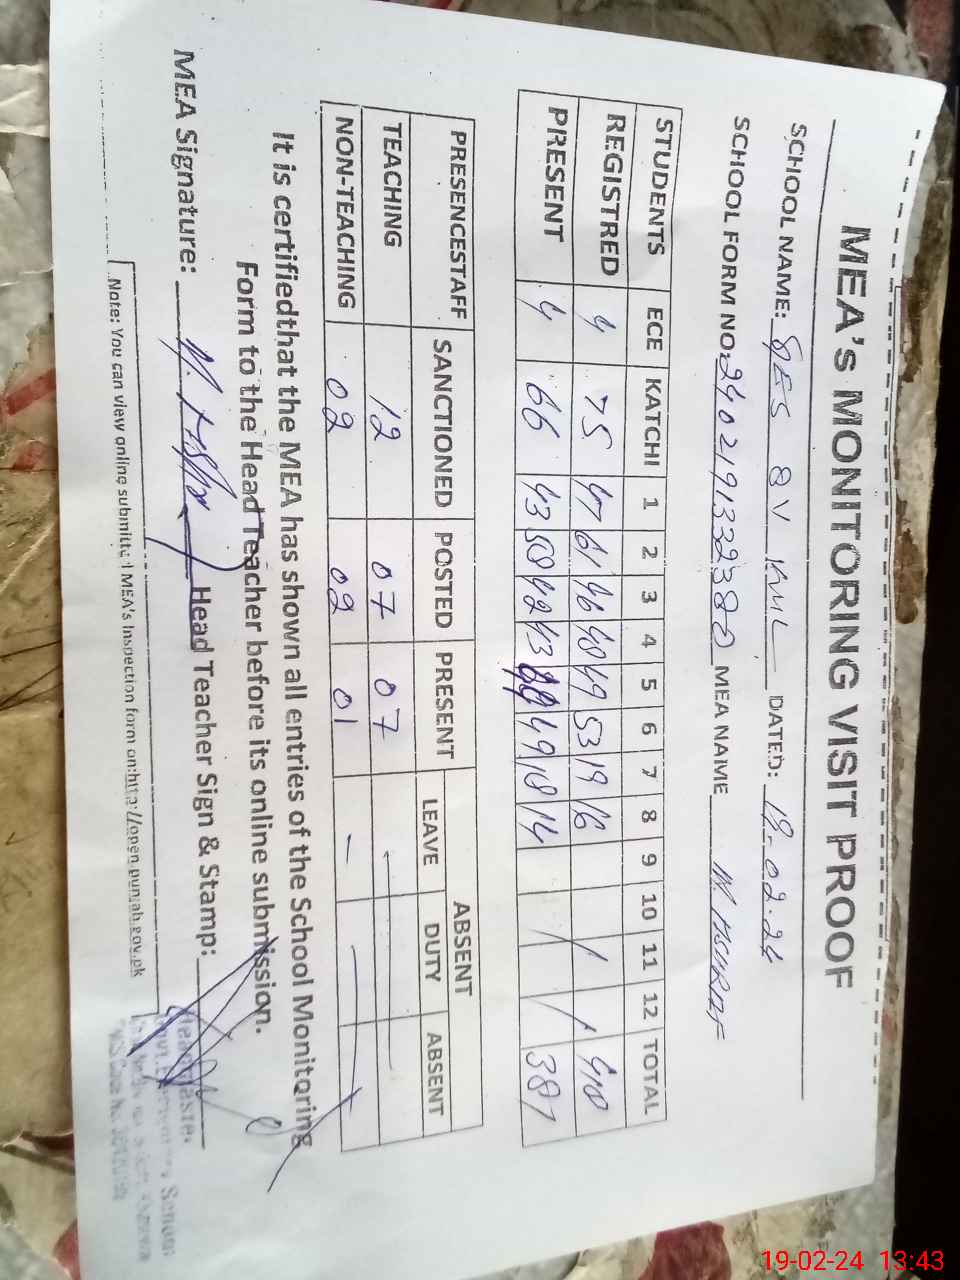 MEA's MONITORING VISIT PROOF
SCHOOL NAME: GES 8V KML DATED: 19-02-24
SCHOOL FORM NO: 24021913323 MEA NAME M. ASHRAF
STUDENTS ECE KATCHI 1 2 3 4 5 6 7 8 9 10 11 12 TOTAL
REGISTRED 4 75 47 61 46 48 49 53 19 16
PRESENT 4 66 43 58 42 43 49 18 14 387
PRESENCESTAFF SANCTIONED POSTED PRESENT ABSENT
LEAVE DUTY ABSENT
TEACHING 12 07 07 - - -
NON-TEACHING 02 02 01 - - -
It is certifiedthat the MEA has shown all entries of the School Monitoring
Form to the Head Teacher before its online submission.
MEA Signature: Head Teacher Sign & Stamp:
Headmaster
Note: You can view online submitted MEA's Inspection form on:http://open.punjab.gov.pk
19-02-24 13:43